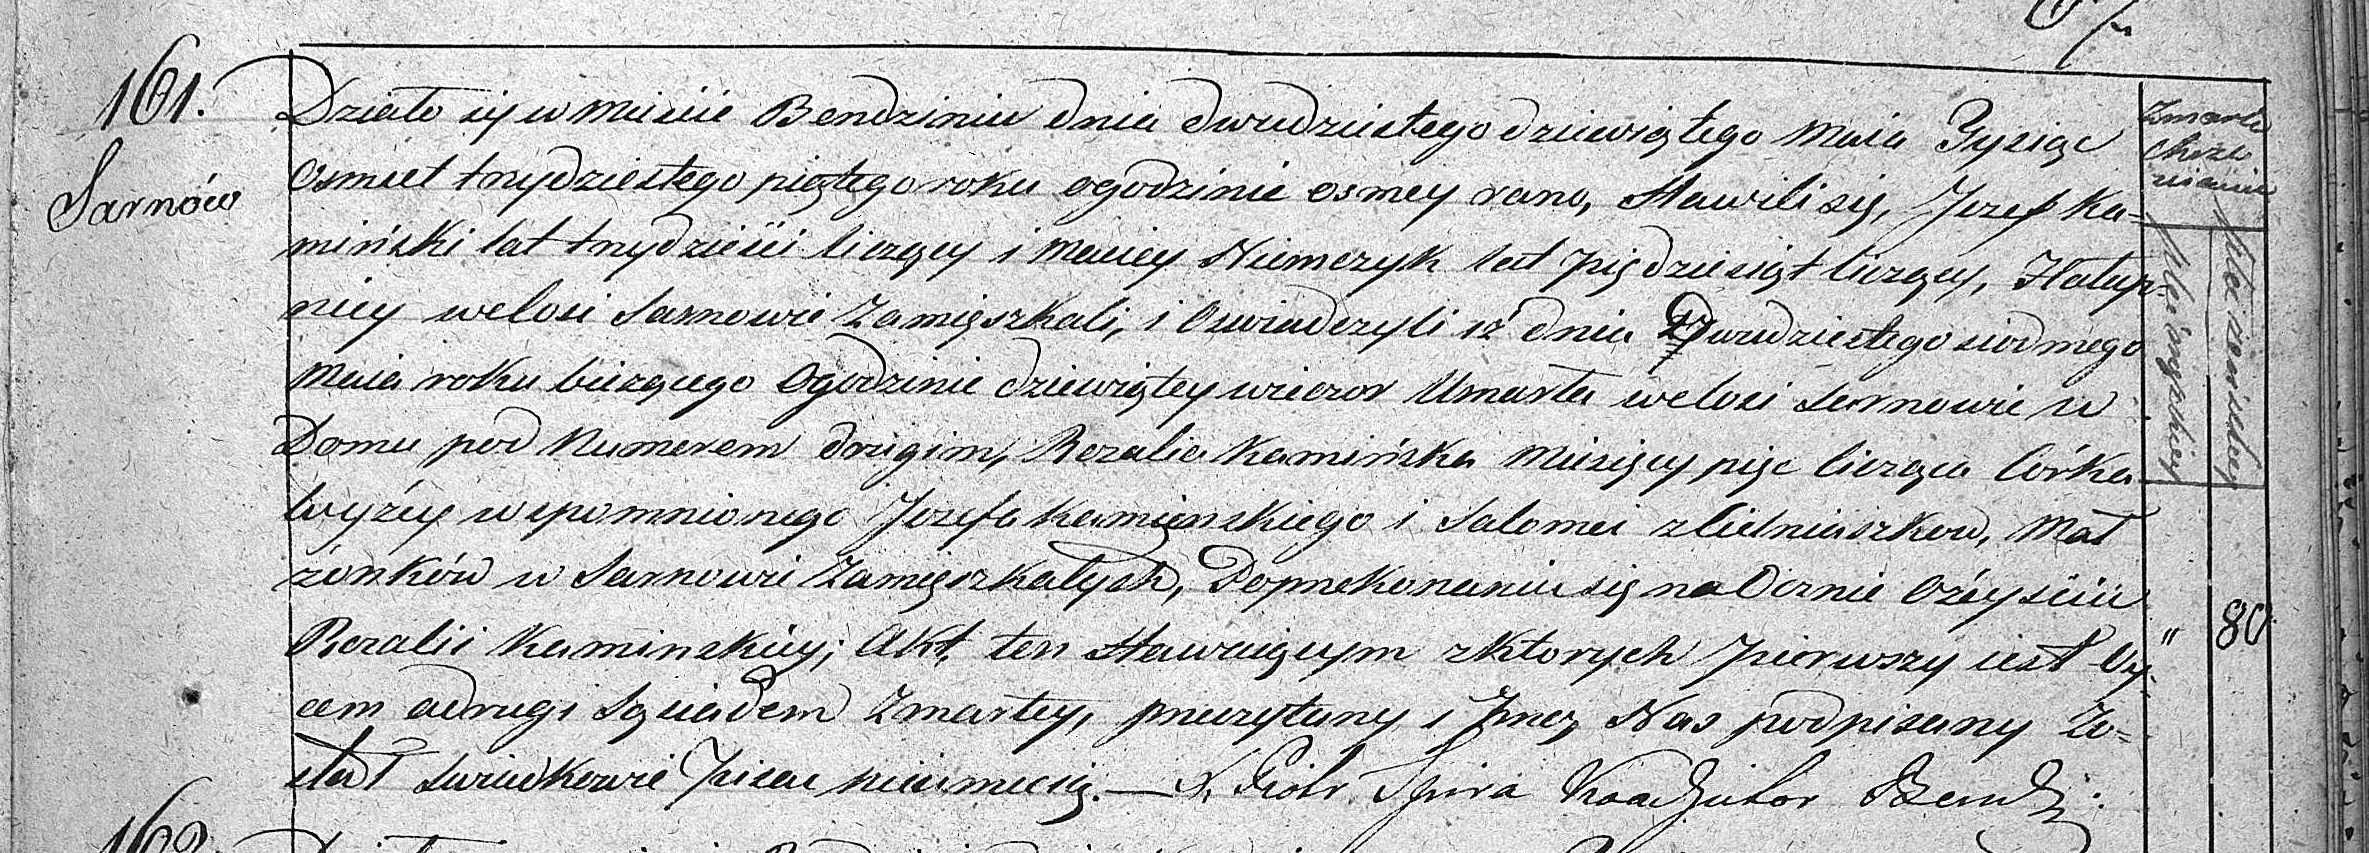 67
161.
Sarnów
Działo się w Mieście Bendzinie dnia dwudziestego dziewiątego Maia Tysiąc
Osmset trzydziestego piątego roku ogodzinie osmey rano, Stawili się, Jozef Ka=
miński lat trzydzieści liczący i Maciey Niemczyk lat piędziesiąt liczący, Hałup
nicy welosi Sarnowie Zamięszkali, i Oswiadczyli iż dnia Dwudziestego siodmego
Maia roku bieżącego Ogodzinie dziewiątey wieczor Umarła welosi Sarnowie w
Domu pod Numerem drugim, Rozalia Kamińska Miesięcy pięć licząca Córka
wyżey wspomnionego Jozefa Kamięnskiego i Salomei z Cieśniaszkow, Mał
żonków w Sarnowie Zamięszkałych, Poprzekonaniu się na Ocznie Oześciu
Rozalii Kaminskiey; Akt ten Stawaiącym zktorych Pierwszy iest Oy=
cem adrugi Sąsiadem Zmarłey, przeczytany i Przez Nas podpisany Zo=
stał Swiadkowie Pisać nieumieią. — X. Piotr Spira Koadjutor Bendz:
Zmarłe
chrze
płci męzkiey
płci zeńskiey
" 80
162.